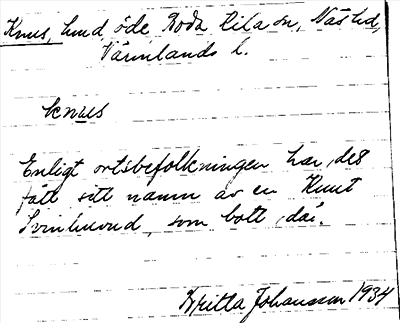 Knus, hmd, öde Boda lilla sn, Näs hd,
Värmlands l.
knus
Enligt ortsbefolkningen har det
fått sitt namn av en Knut
Svinhuvud, som bott där.
Britta Johansson 1934